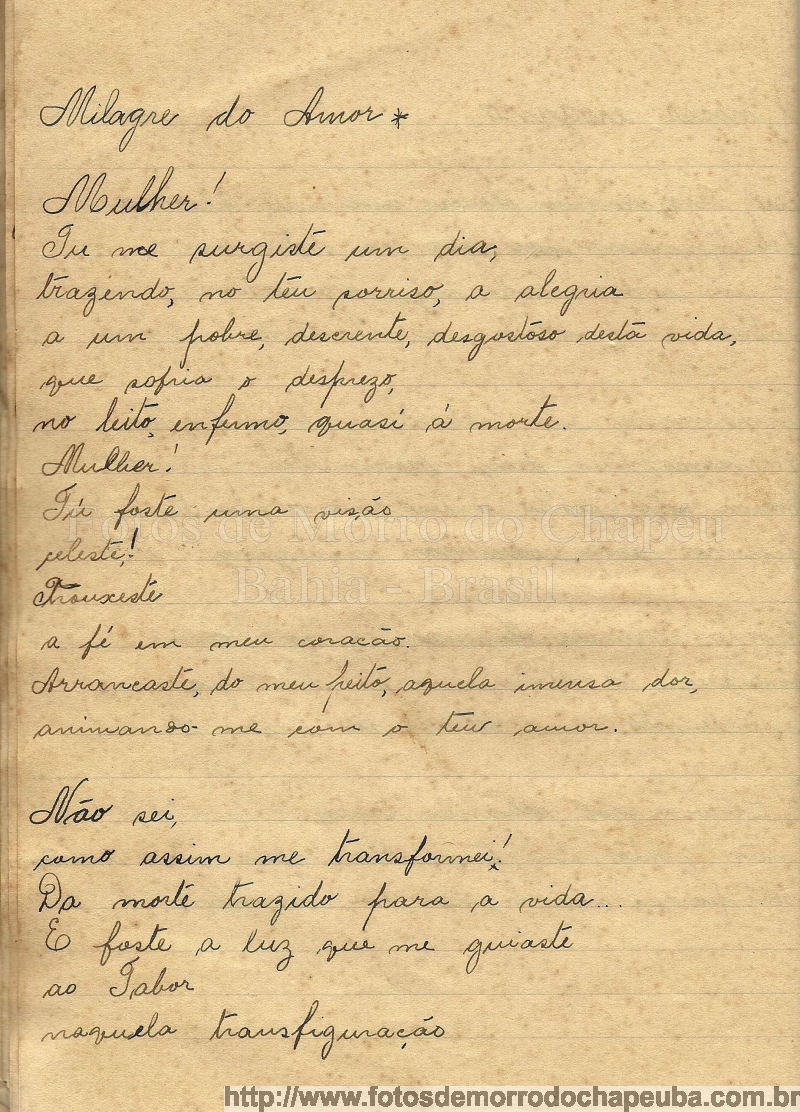 Milagre do Amor *
Mulher!
Tu me surgiste um dia,
trazendo, no teu sorriso, a alegria
a um pobre, descrente, desgostôso desta vida,
que sofria o desprezo,
no leito, enfermo, quasi á morte.
Mulher!
Tú foste uma visão
celeste!
Trouxeste
a fé em meu coração.
Arrancaste, do meu peito, aquela imensa dor,
animando-me com o teu amor.
Não sei,
como assim me transformei!
Da morte trazido para a vida...
E foste a luz que me guiaste
ao Tabor
naquela transfiguração
Fotos de Morro do Chapéu
Bahia - Brasil
http://www.fotosdemorrodochapeuba.com.br